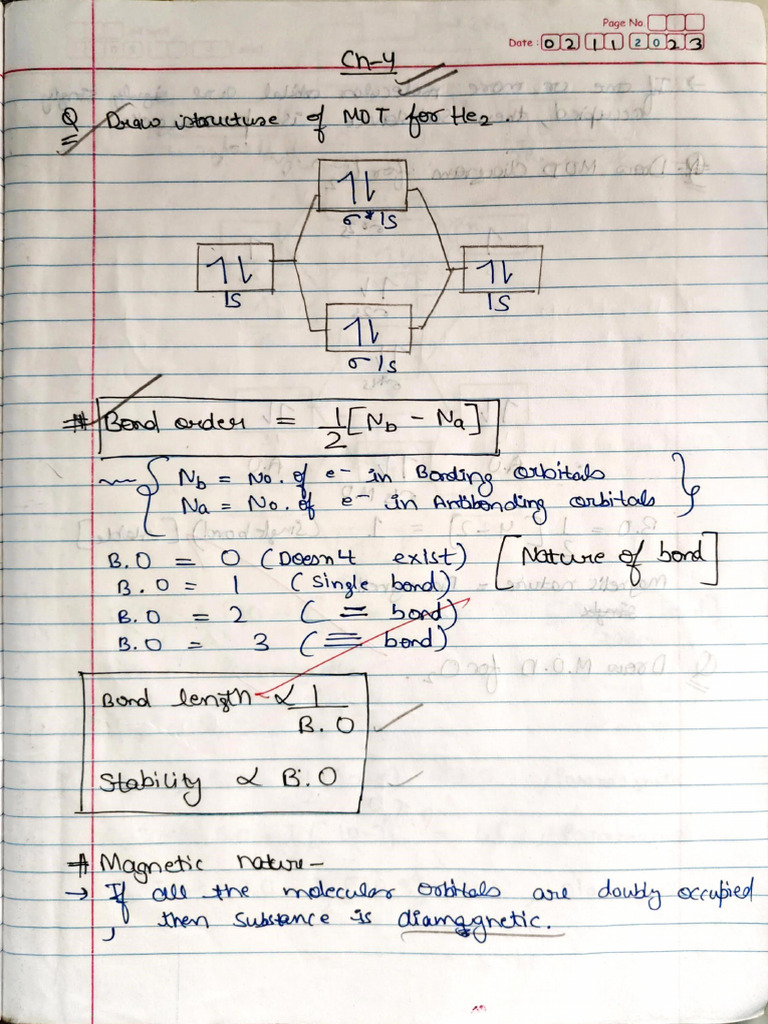 Page No.
Date: 02 11 2023
Ch-4
Q Draw structure of MOT for He2.
1↿⇂
σ*1s
↿⇂
1s
↿⇂
1s
↿⇂
σ1s
# Bond order = 1/2 [Nb - Na]
Nb = No. of e- in Bonding orbitals
Na = No. of e- in Antibonding orbitals
B.O = 0 (Doesn't exist) [Nature of bond]
B.O = 1 (Single bond)
B.O = 2 (= bond)
B.O = 3 (≡ bond)
Bond length ∝ 1/B.O
Stability ∝ B.O
# Magnetic nature-
→ If all the molecular orbitals are doubly occupied
, then substance is diamagnetic.